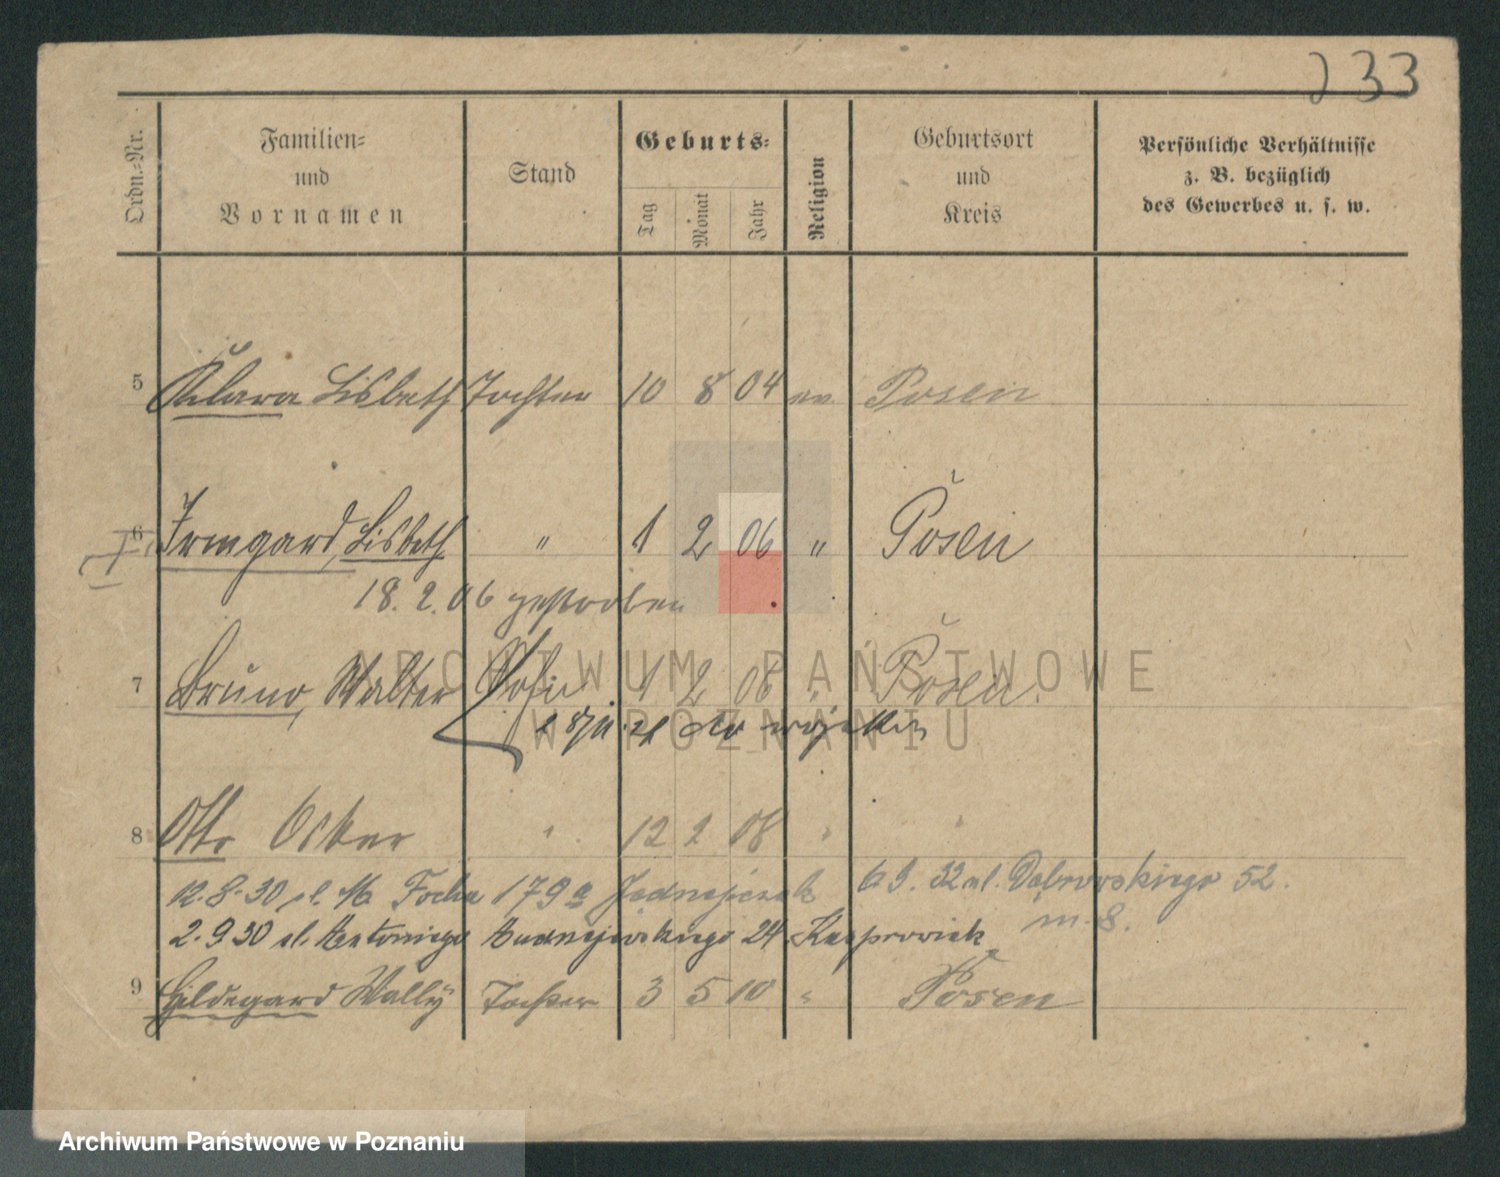 233
Ordn.-Nr.
Familien-
und
Vornamen
Stand
Geburts-
Tag
Monat
Jahr
Religion
Geburtsort
und
Kreis
Persönliche Verhältnisse
z. B. bezüglich
des Gewerbes u. s. w.
5 Klara Lisbeth Tochter 10 8 04 ev. Posen
6 Irmgard, Lisbeth " 1 2 06 " Posen
18. 2. 06 gestorben
7 Bruno, Walter Sohn 1 2 08 " Posen
8 Otto Oskar " 12 2 08 " "
12.8.30 ul. M. Focha 179a Jednejczak 6 9. 32 ul. Dąbrowskiego 52.
m. 8.
2.9.30 ul. Antoniego 24 Kasprowiak
9 Hildegard Wally Tochter 3 5 10 " Posen
ARCHIWUM PAŃSTWOWE
W POZNANIU
Archiwum Państwowe w Poznaniu